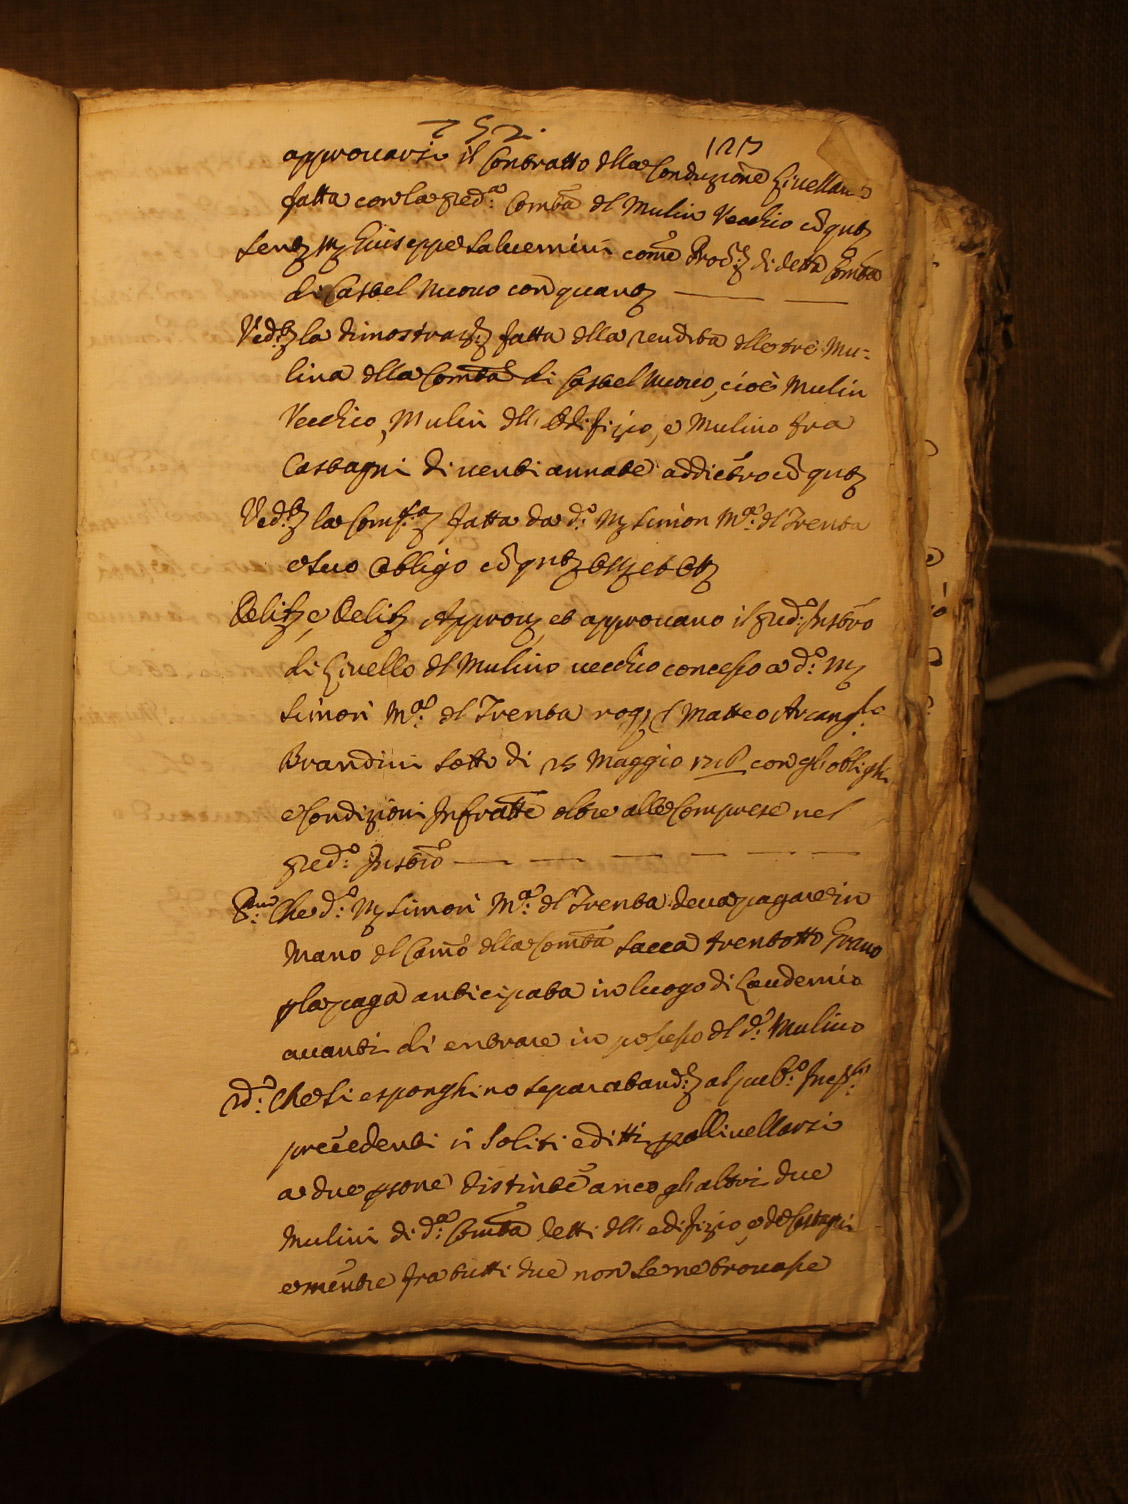 252. 123
approuarsi il Contratto della Conduzione Livellaria
fatta con la pred.a Comtà del Mulin Vecchio
Ser Giuseppe Saluernini come Proc.re di detta Comtà
di Castel Nuouo con quanto
Ved.to la dimostraz.e fatta della rendita delle tre Mu=
lina della Comtà di Castel Nuouo, cioè Mulin
Vecchio, Mulin dell Edifizio, e Mulino fra
Castagni di uenti annate addietro cō
Ved.ta la fatta da d.o Simon M.a del Trenta
e suo Obbligo cō
Delib. e Delib. Approu. et approuano il pred.o Instr̄o
di Livello del Mulino uecchio concesso a d.o
Simon M.a del Trenta rog. Matteo Arcang.lo
Brandini sotto di 25 Maggio con gl'obblighi
e Condizioni Infratte oltre alle Comprese nel
pred.o Instr̄o
P.mo Che d.o Simon M.a del Trenta deua pagare in
Mano del Cam̄o della Comtà Sacca trentotto Grano
p la paga anticipata in luogo di Laudemio
auanti di entrare in possesso del d.o Mulino
2d.o Che si esponghino separatand.e al pub.o
precedenti i soliti editti p alliuellarsi
a due psone distinte anco gli altri due
Mulini di d.a Comtà detti dell edifizio, e de Castagni
e mentre fra tutti due non se ne trouasse